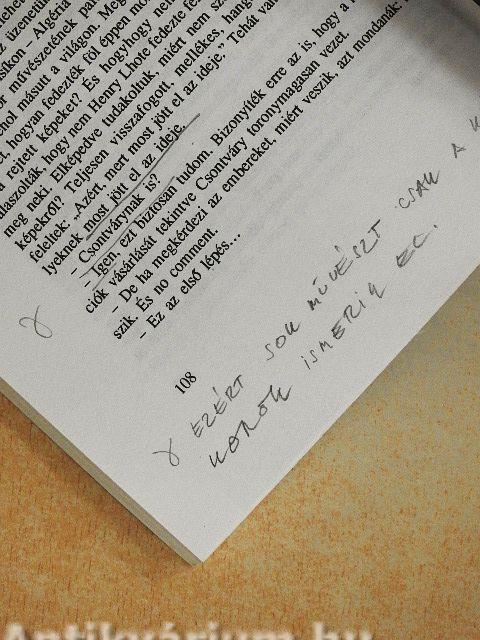 üzenetük
sikon. - Algéria
művészetének
ahol másutt a világon.
hogyan fedezték föl éppen most
rejtett képeket? És hogyhogy nem
hogy nem Henry Lhote fedezte
meg neki. Elképedve tudakoltuk, miért nem
képekről? Teljesen visszafogott, mellékes,
feleltek: „Azért, mert most jött el az ideje." Tehát
lyeknek most jött el az ideje.
– Csontvárynak is?
– Igen, ezt biztosan tudom. Bizonyíték erre az is, hogy a
ciók vásárlását tekintve Csontváry toronymagasan vezet.
– De ha megkérdezi az embereket, miért veszik, azt mondanák:
szik. És no comment.
– Ez az első lépés...
108
EZÉRT SOK MŰVÉSZT CSAK A
KOROK ISMERIK EL.
Antikvárium.hu